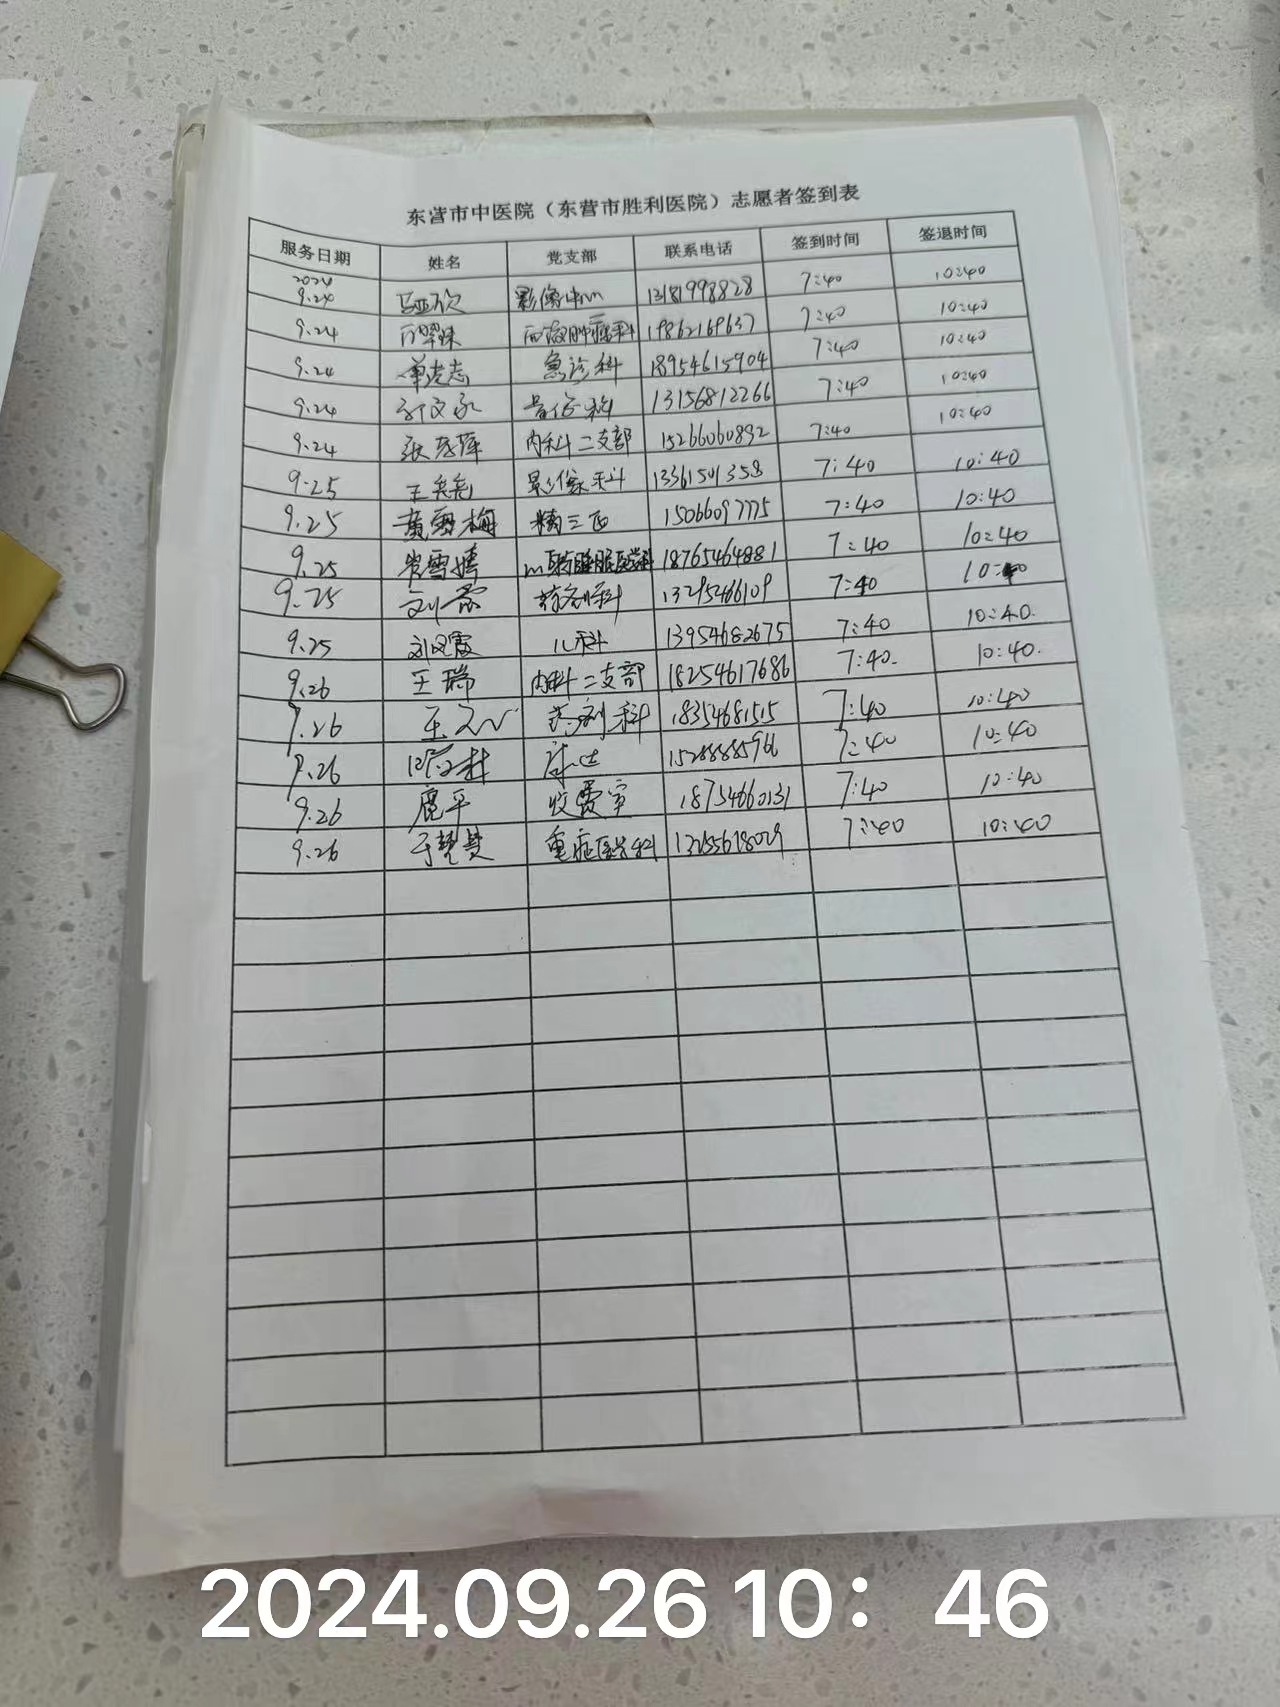 东营市中医院（东营市胜利医院）志愿者签到表
服务日期 姓名 党支部 联系电话 签到时间 签退时间
2024 9.24 马亚欣 影像中心 13181998828 7:40 10:40
9.24 7:40 10:40
9.24 急诊科 18954615904 7:40 10:40
9.24 13156812266 7:40 10:40
9.24 内科二支部 15266060892 7:40 10:40
9.25 王亮亮 影像科 13361501358 7:40 10:40
9.25 黄雪梅 15066097775 7:40 10:40
9.25 18765464881 7:40 10:40
9.25 药剂科 7:40
9.25 刘风霞 儿科 13954682675 7:40 10:40.
9.26 王瑞 内科二支部 18254617686 7:40. 10:40.
9.26 药剂科 18354681515 7:40 10:40
9.26 7:40 10:40
9.26 鹿平 收费室 18754660131 7:40 10:40
9.26 重症医学科 7:40 10:40
2024.09.26 10：46